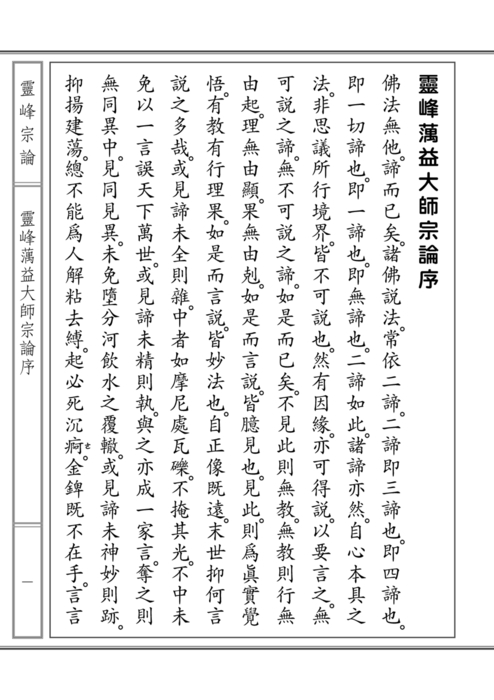 靈峰蕅益大師宗論序
佛法無他。諦而已矣。諸佛說法。常依二諦。二諦即三諦也。即四諦也。
即一切諦也。即一諦也。即無諦也。二諦如此。諸諦亦然。自心本具之
法。非思議所行境界。皆不可說也。然有因緣。亦可得說。以要言之。無
可說之諦。無不可說之諦。如是而已矣。不見此則無教。無教則行無
由起。理無由顯。果無由剋。如是而言說。皆臆見也。見此。則爲眞實覺
悟。有教有行理果。如是而言說。皆妙法也。自正像既遠。末世抑何言
說之多哉。或見諦未全則雜。中者如摩尼處瓦礫。不掩其光。不中未
免以一言誤天下萬世。或見諦未精則執。與之亦成一家言。奪之則
無同異中。見同見異。未免墮分河飲水之覆轍。或見諦未神妙則跡。
抑揚建蕩。總不能爲人解粘去縛。起必死沉痾。金錍既不在手。言言
靈峰宗論
靈峰蕅益大師宗論序
一